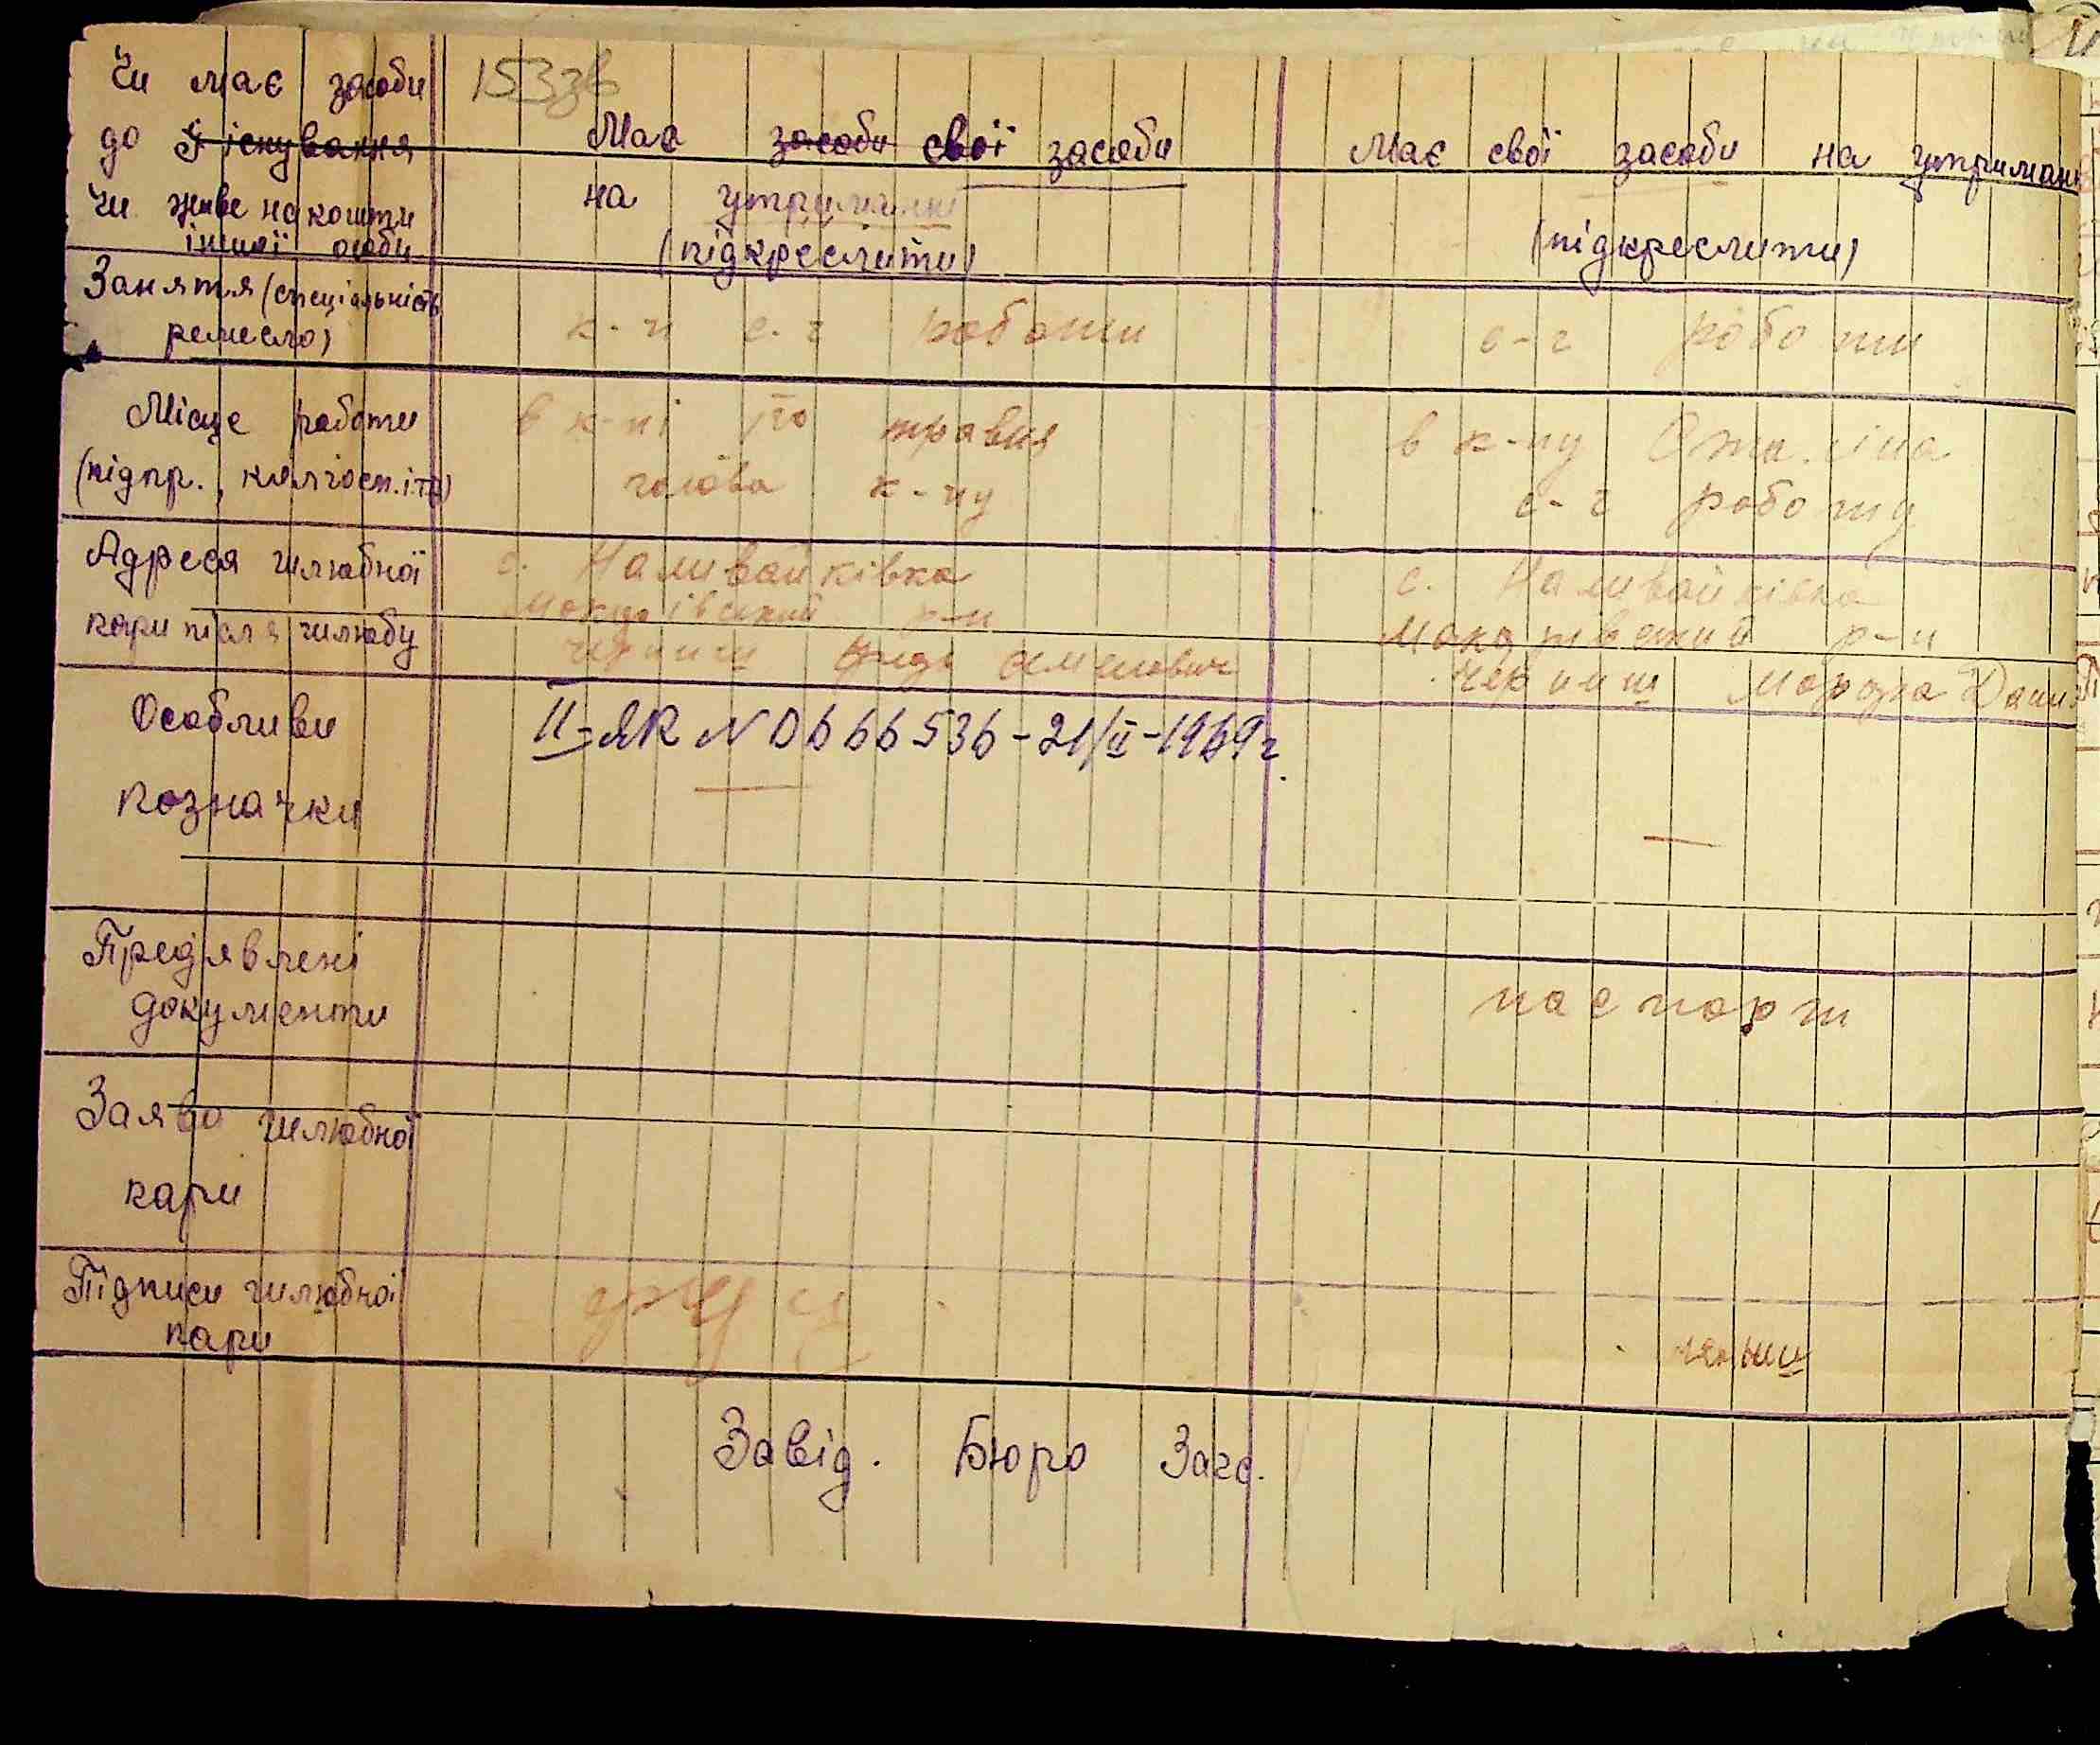 153зв
Чи має засоби
до існування
чи живе на кошти
іншої особи
Має засоби свої засоби
на утриманні
(підкреслити)
Має свої засоби на утриман
(підкреслити)
Заняття (спеціальність
ремесло)
к-п с-г роботи
с-г роботи
Місце роботи
(підпр., колгосп. і тд)
в к-пі 1го травня
голова к-пу
в к-пу Сталіна
с-г роботу
Адреся шлюбної
пари після шлюбу
с. Наливайківка
Макарівський р-н
Черниш Семенович
с. Наливайківка
Макарівський р-н
Черниш Мотузка Дани
Особливи
позначки
II-ЯК N 0666536-21/II-1969 г.
Предявлені
документи
паспорт
Заява шлюбної
пари
Підписи шлюбної
пари
Завід. Бюро Загс.